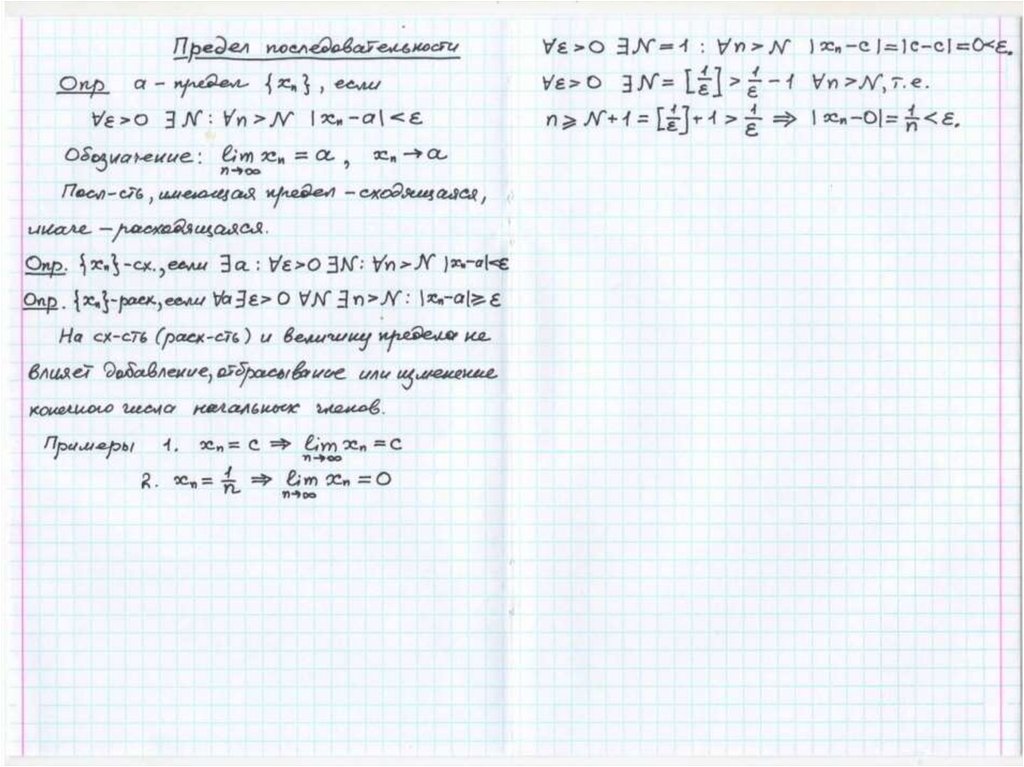 Предел последовательности
Опр a – предел {xₙ}, если
∀ε>0 ∃N: ∀n>N |xₙ-a|<ε
Обозначение: lim xₙ = a, xₙ→a
n→∞
Посл-сть, имеющая предел – сходящаяся,
иначе – расходящаяся.
Опр. {xₙ}-сх., если ∃a: ∀ε>0 ∃N: ∀n>N |xₙ-a|<ε
Опр. {xₙ}-расх, если ∀a ∃ε>0 ∀N ∃n>N: |xₙ-a|≥ε
На сх-сть (расх-сть) и величину предела не
влияет добавление, отбрасывание или изменение
конечного числа начальных членов.
Примеры 1. xₙ = c ⇒ lim xₙ = c
n→∞
2. xₙ = 1/n ⇒ lim xₙ = 0
n→∞
∀ε>0 ∃N=1: ∀n>N |xₙ-c|=|c-c|=0<ε.
∀ε>0 ∃N=[1/ε]>1/ε-1 ∀n>N, т.е.
n≥N+1=[1/ε]+1>1/ε ⇒ |xₙ-0|=1/n<ε.